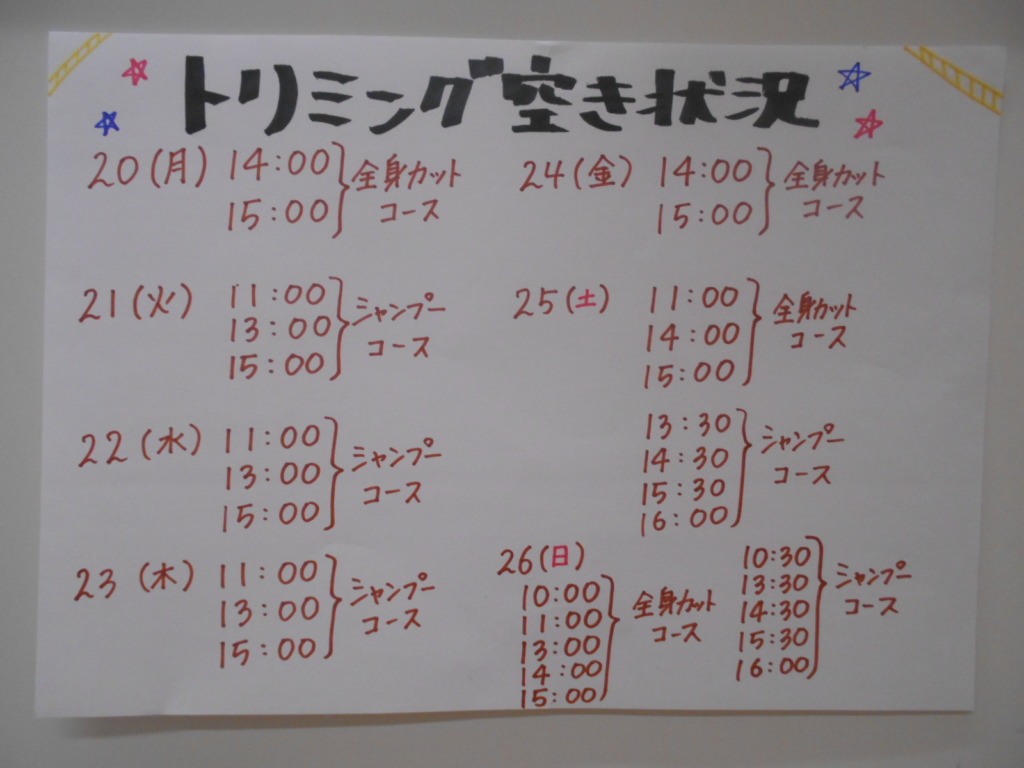 トリミング空き状況
20(月) 14:00
15:00
全身カット
コース
21(火) 11:00
13:00
15:00
シャンプー
コース
22(水) 11:00
13:00
15:00
シャンプー
コース
23(木) 11:00
13:00
15:00
シャンプー
コース
24(金) 14:00
15:00
全身カット
コース
25(土) 11:00
14:00
15:00
全身カット
コース
13:30
14:30
15:30
16:00
シャンプー
コース
26(日)
10:00
11:00
13:00
14:00
15:00
全身カット
コース
10:30
13:30
14:30
15:30
16:00
シャンプー
コース